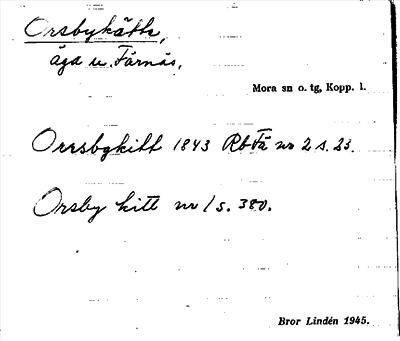 Orsbykätte,
äga u. Färnäs,
Mora sn o. tg, Kopp. l.
Orrsbykitt 1843 Rb Fä nr 2 s. 23.
Orsby kitt nr 1 s. 380.
Bror Lindén 1945.